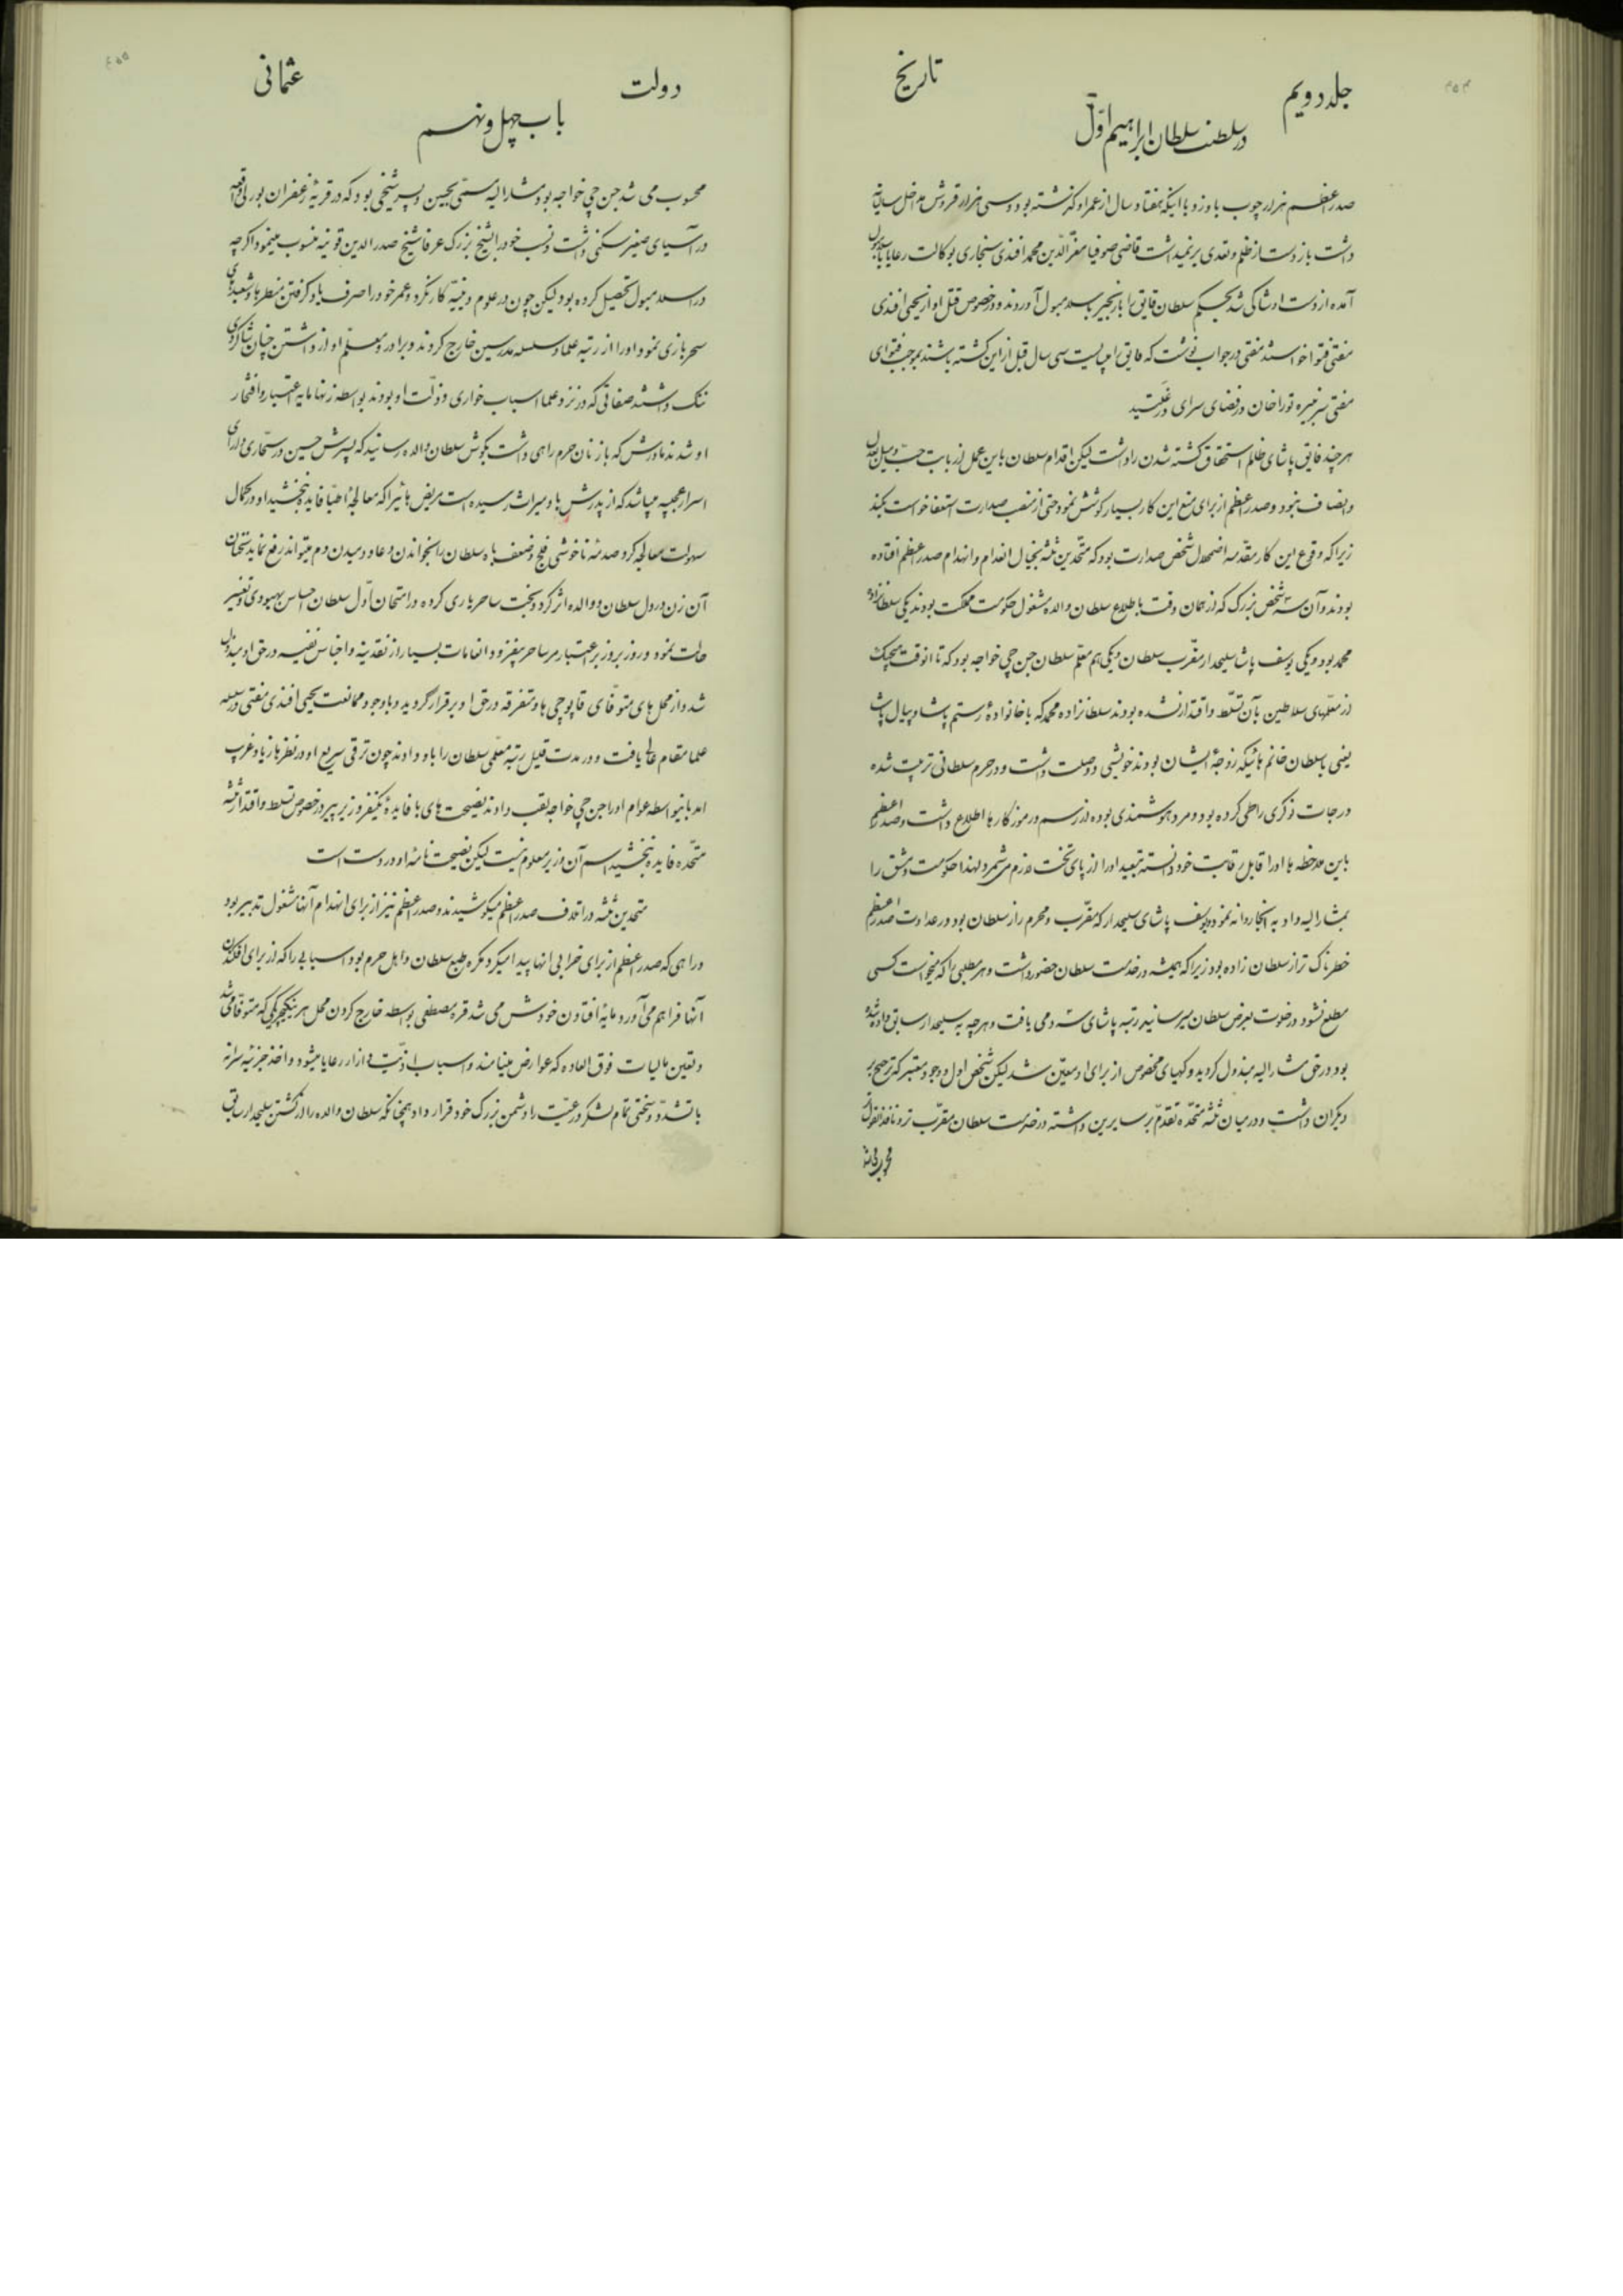 ۴۵۴
جلد دویم
تاریخ
در سلطنت سلطان ابراهیم اوّل
صدر اعظم هزار چوب باو زد با اینکه هفتاد سال از عمر او گذشته بود و سی هزار قروش مداخل سالیانه
داشت باز دست از ظلم و تعدی برنمیداشت قاضی صوفیا معزّ الدّین محمد افندی سنجاری بوکالت رعایا باسلامبول
آمده از دست او شاکی شد بحکم سلطان فایق را با زنجیر باسلامبول آوردند و در خصوص قتل او از یحیی افندی
مفتی فتوا خواستند مفتی در جواب نوشت که فایق را میبایست سی سال قبل از این کشته باشند بموجب فتوای
مفتی سر نبیره توراخان در فضای سرای در غلتید
هر چند فایق پاشای ظالم استحقاق کشته شدن را داشت لیکن اقدام سلطان باین عمل از بابت حبّ و میل بعدل
و انصاف نبود و صدر اعظم از برای منع این کار بسیار کوشش نمود حتی از منصب صدارت استعفا خواست بکند
زیرا که وقوع این کار مقدّمه اضمحلال شخص صدارت بود که متّحدین ثلثه بخیال انعدام و انهدام صدر اعظم افتاده
بودند و آن سه شخص بزرگ که از همان وقت باطلاع سلطان والده مشغول حکومت مملکت بودند یکی سلطانزاده
محمد بود و یکی یوسف پاشا سلیحدار مقرّب سلطان و یکی هم معلّم سلطان جن چی خواجه بود که تا آنوقت هیچیک
از معلّمهای سلاطین بآن تسلّط و اقتدار نشده بودند سلطانزاده محمد که با خانوادهٔ رستم پاشا و پیال پاشا
یعنی با سلطان خانم هائیکه زوجهٔ ایشان بودند خویشی و وصلت داشت و در حرم سلطانی تربیت شده
درجات نوکری را طی کرده بود و مرد هوشمندی بوده از رسم و رموز کارها اطلاع داشت و صدر اعظم
باین ملاحظه ها او را قابل رقابت خود دانسته تبعید او را از پای تخت لازم می شمرد لهذا حکومت دمشق را
بمشارالیه داد به انجا روانه نمود یوسف پاشای سلیحدار که مقرّب و محرم راز سلطان بود در عداوت صدر اعظم
خطرناک تر از سلطان زاده بود زیرا که همیشه در خدمت سلطان حضور داشت و هر مطلبی را که میخواست کسی
مطلع نشود در خلوت بعرض سلطان میرسانید رتبه پاشای سه دمی یافت و هرچه به سلیحدار سابق داده شده
بود در حق مشارالیه مبذول گردید و کهیای مخصوص از برای او معیّن شد لیکن شخص اول و وجود معتبر که ترجیح بر
دیگران داشت و در میان ثلثه متّحده تقدّم بر سایرین داشته در خدمت سلطان مقرّب تر و نافذ القول تر
محسوب می شد
۴۵۵
دولت
عثمانی
باب چهل و نهم
محسوب می شد جن چی خواجه بود مشارالیه مسمّی بحسین و پسر شیخی بود که در قریهٔ زعفران بورلی واقعه
در آسیای صغیر سکنی داشت و نسب خود را بشیخ بزرگ عرفا شیخ صدر الدین قونیه منسوب مینمود اگرچه
در اسلامبول تحصیل کرده بود لیکن چون در علوم دینیّه کار نکرد و عمر خود را صرف یاد گرفتن منطرها و شعبده و
سحر بازی نمود او را از رتبه علما و سلسله مدرسین خارج کردند و برادر و معلّم او از داشتن چنان شاگردی
ننگ داشتند صفاتی که در نزد علما اسباب خواری و ذلّت او بودند بواسطه زنها مایه اعتبار و افتخار
او شدند مادرش که با زنان حرم راهی داشت بگوش سلطان والده رسانید که پسرش حسین در سحّاری دارای
اسرار عجیبه میباشد که از پدرش باو میراث رسیده است مریض هائیرا که معالجهٔ اطبّا فایده نبخشید او در کمال
سهولت معالجه کرد صدمه ناخوشی فلج و ضعف باه سلطان را بخواندن دعا و دمیدن دم میتواند رفع نماید سخنان
آن زن در دل سلطان و والده اثر کرد و بخت ساحر یاری کرده در امتحان اوّل سلطان احساس بهبودی و تغییر
حالت نمود و روز بروز بر اعتبار مرد ساحر میفزود و انعامات بسیار از نقدینه و اجناس نفیسه در حق او مبذول
شد و از محل های متوفّای قاپوچی ها و متفرقه در حق او برقرار گردید و با وجود ممانعت یحیی افندی مفتی در سلسله
علما بمقام عالی یافت و در مدت قلیل رتبه معلّمی سلطان را باو دادند چون ترقی سریع او در نظرها زیاد غریب
امد باینواسطه عوام او را جن چی خواجه لقب دادند نصیحت های با فایدهٔ یکنفر وزیر پیر در خصوص تسلط و اقتدار ثلثه
متّحده فایده نبخشید اسم آن وزیر معلوم نیست لیکن نصیحت نامهٔ او در دست است
متحدین ثلثه در اتلاف صدر اعظم میکوشیدند و صدر اعظم نیز از برای انهدام آنها مشغول تدبیر بود
و راهی که صدر اعظم از برای خرابی انها پیدا میکرد مکره طبع سلطان و اهل حرم بود اسبابی را که از برای افکندن
آنها فراهم می آورد مایهٔ افتادن خودش می شد قره مصطفی بواسطه خارج کردن محل هر ینکیچری که متوفّا می شد
و تعین مالیات فوق العاده که عوارض مینامند و اسباب اذیّت و ازار رعایا میشود و اخذ جزیهٔ سرانه
با تشدّد و سختی تمام لشکر و رعیّت را دشمن بزرگ خود قرار داد همچنانکه سلطان والده را از کشتن سلیحدار سابق